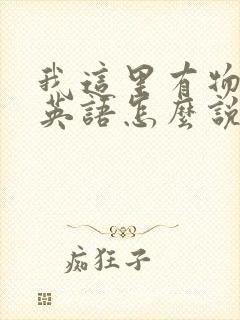 我這里有物
英語怎麼說
痴狂子